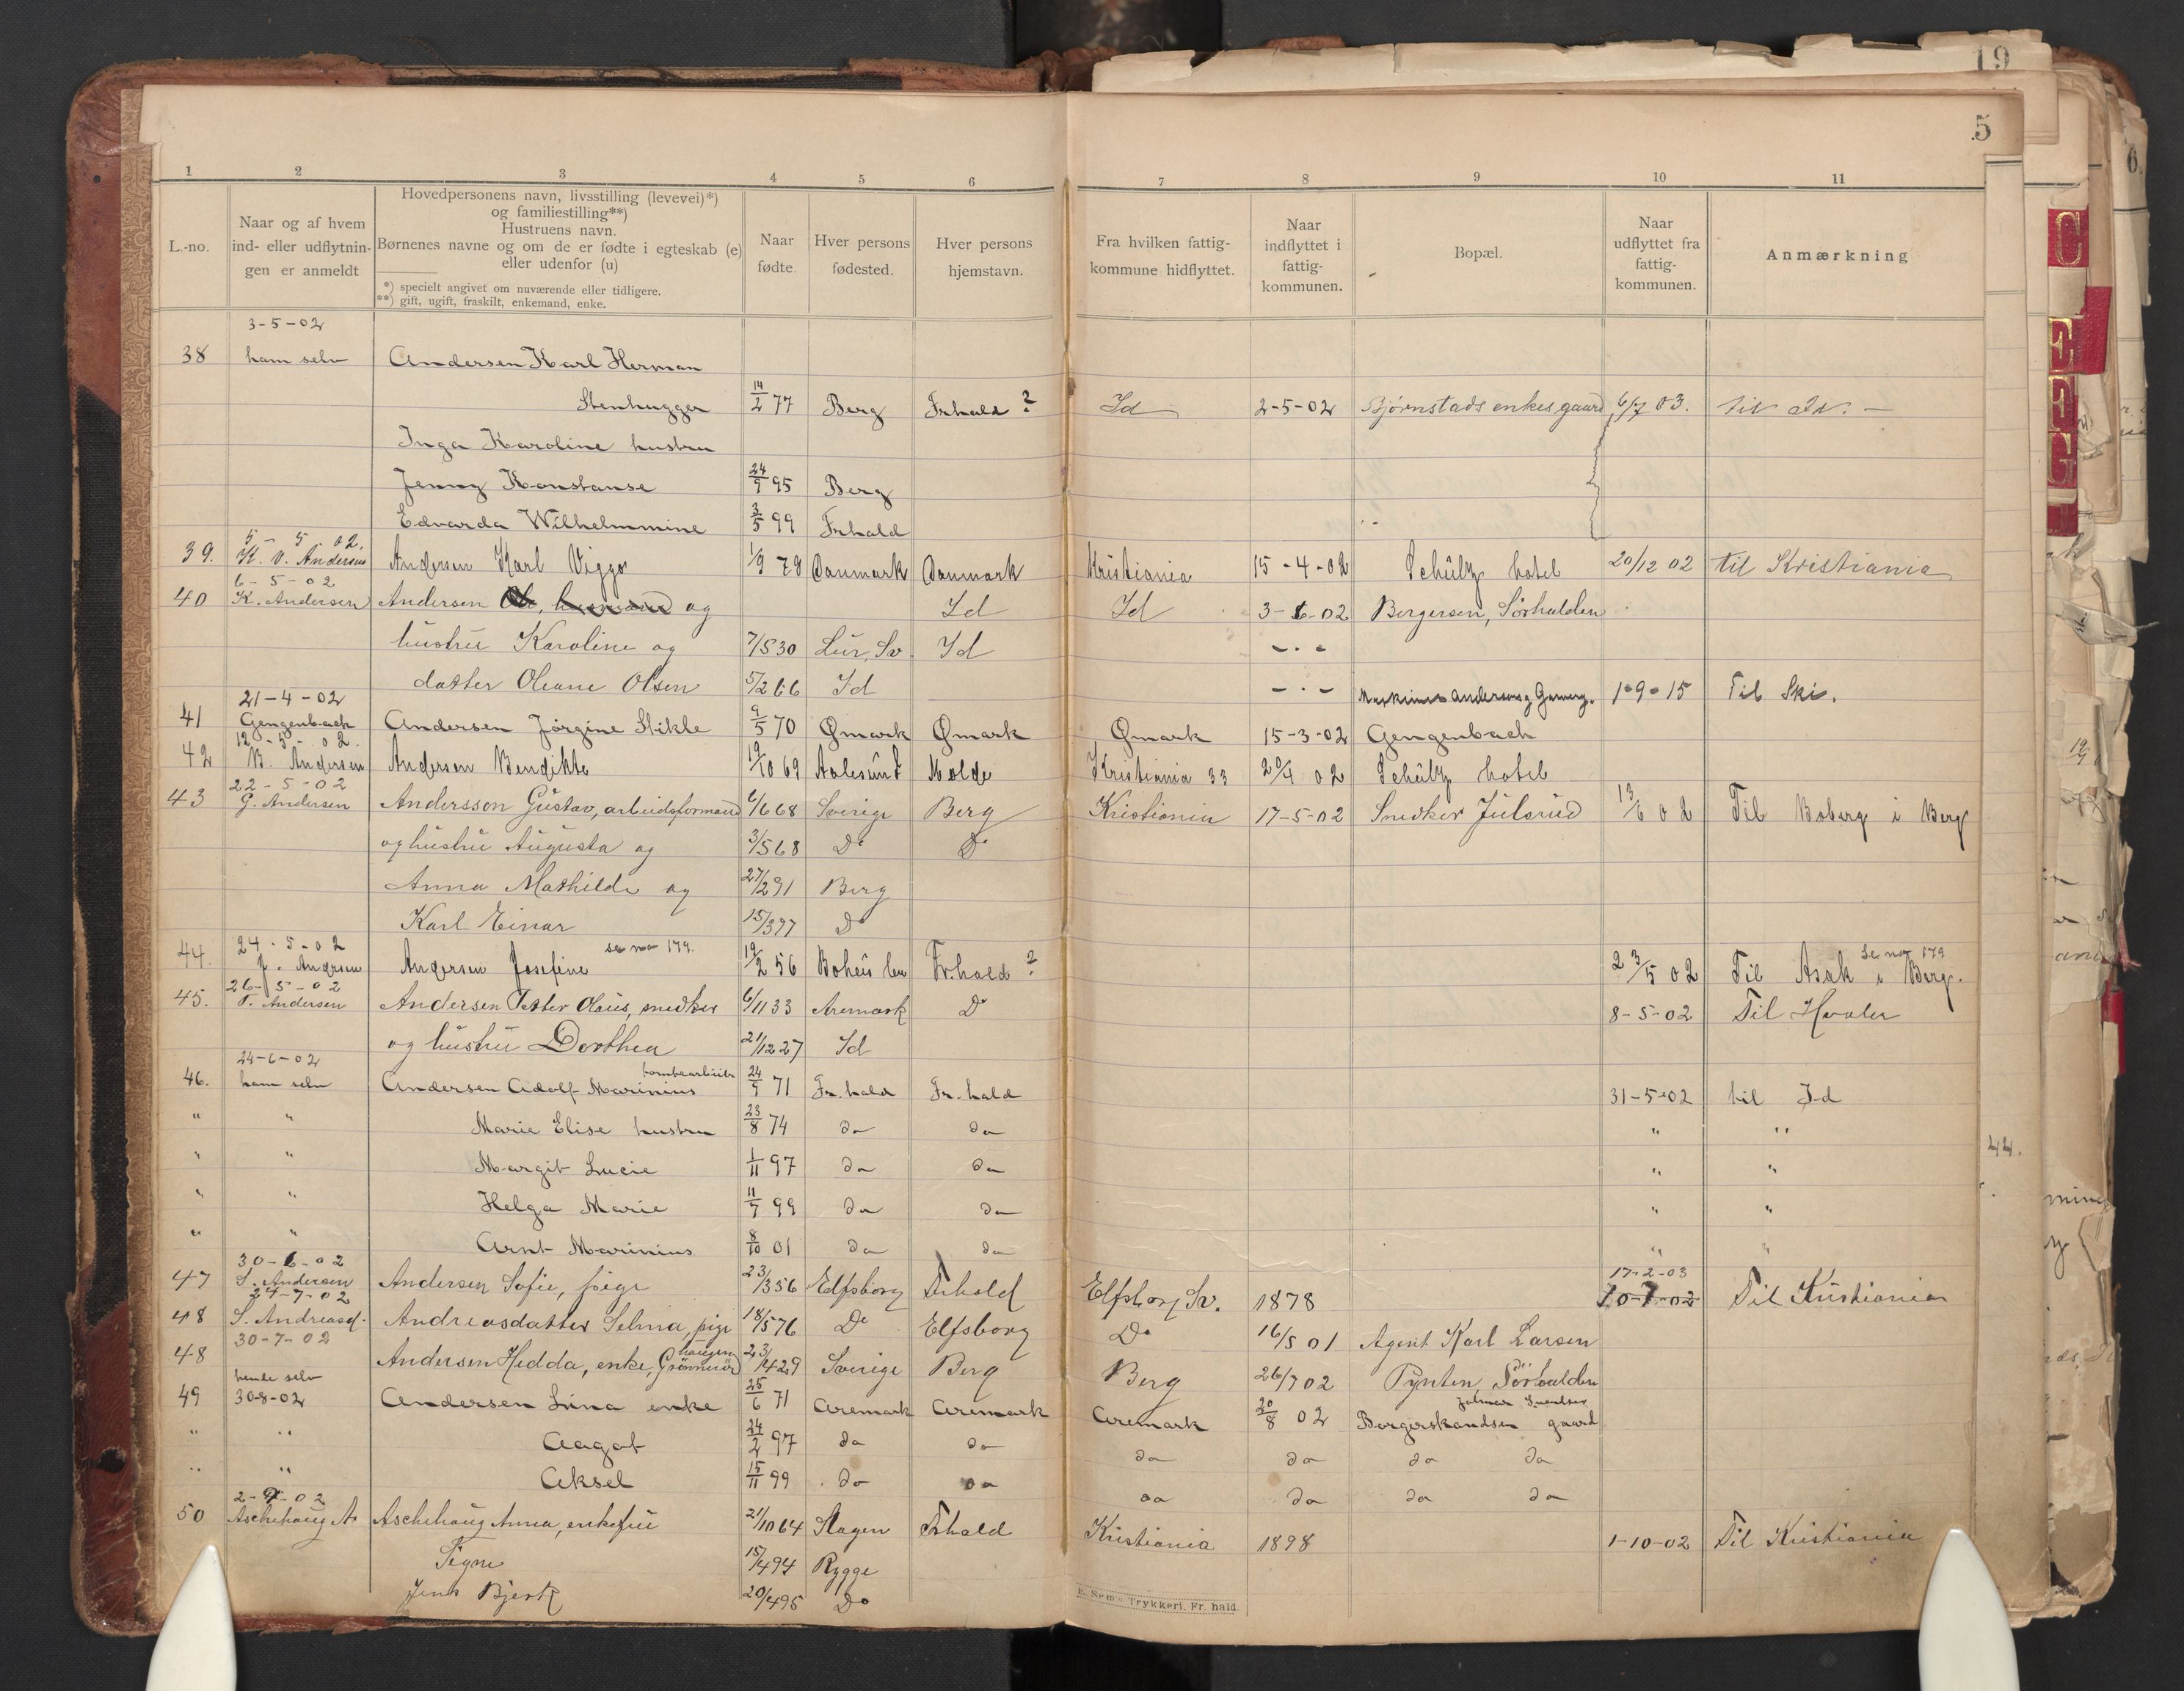 19
5
6.
1 2 3 4 5 6 7 8 9 10 11
L.-no.
Naar og af hvem
ind- eller udflytnin-
gen er anmeldt
Hovedpersonens navn, livsstilling (levevei)*)
og familiestilling**)
Hustruens navn.
Børnenes navne og om de er fødte i egteskab (e)
eller udenfor (u)
*) specielt angivet om nuværende eller tidligere.
**) gift, ugift, fraskilt, enkemand, enke.
Naar
fødte.
Hver persons
fødested.
Hver persons
hjemstavn.
Fra hvilken fattig-
kommune hidflyttet.
Naar
indflyttet i
fattig-
kommunen.
Bopæl.
Naar
udflyttet fra
fattig-
kommunen.
Anmærkning
3-5-02
38 ham selv Andersen Karl Herman
Stenhugger 14/2 77 Berg Frhald ? Id 2-5-02 Bjørnstads enkes gaard 6/7 03. til Id. –
Inga Karoline hustru
Jenny Konstanse 24/9 95 Berg
Edvarda Wilhelmmine 3/5 99 Frhald
5-5-02.
39. K. V. Andersen Andersen Karl Viggo 1/9 78 Danmark Danmark Kristiania 15-4-02 Schültz hotel 20/12 02 til Kristiania
6-5-02
40 K. Andersen Andersen og Id Id 3-6-02 Bergersen, Sörhalden
hustru Karoline og 7/5 30 Lur, Sv Id -.-
datter Oleane Olsen 5/2 66 Id -.- Andersens 1-9-15 Til Ski.
21-4-02
41 Gengenbach Andersen Jörgine Stikle 9/5 70 Ømark Ømark Ømark 15-3-02 Gengenbach
12-5-02.
42 B. Andersen Andersen Bendikte 19/10 69 Aalesund Molde Kristiania 33 29/4 02 Schültz hotel
22-5-02
43 G. Andersen Andersson Gustav, arbeidsformand 6/6 68 Sverige Berg Kristiania 17-5-02 Snedker Julsrud 13/6 02 Til Boberg i Berg
og hustru Augusta og 3/5 68 Do Do
Anna Mathilde og 27/2 91 Berg
Karl Einar 15/3 97 Do
24-5-02 se no 179. Se no 179
44. J. Andersen Andersen Josefine 19/2 56 Bohus len Fr.hald ? 23/5 02 Til Asak i Berg.
26-5-02
45. P. Andersen Andersen Petter Olaus, snedker 6/11 33 Aremark Do 8-5-02 Til Hvaler
og hustru Dorthea 21/12 27 Id
24-6-02 tomtearbeider
46. ham selv Andersen Adolf Marinius 24/9 71 Fr. hald Fr. hald 31-5-02 til Id
" " Marie Elise hustru 23/8 74 do do " "
" " Margit Lucie 1/11 97 do do " "
" " Helga Marie 11/9 99 do do " "
" " Arnt Marinius 8/10 01 do do " "
30-6-02 17-2-03
47 S. Andersen Andersen Sofie, pige 23/3 56 Elfsborg Frhald Elfsborg Sv. 1878 10-7-02 Til Kristiania
24-7-02
48 S. Andreasd. Andreasdatter Selma, pige 18/5 76 Do Elfsborg Do 16/5 01 Agent Karl Larsen
30-7-02
48 Andersen Hedda, enke, 23/4 29 Sverige Berg Berg 26/7 02 Pynten Sörhalden
hende selv
49 30-8-02 Andersen Lina enke 25/6 71 Aremark Aremark Aremark 20/8 02 Borgerskandsen gaard
" " Aagot 24/2 97 do do do do do do
" " Aksel 15/11 99 do do do do do do
2-9-02
50 Aschehoug A. Aschehoug Anna, enkefru 21/10 64 Slagen Frhald Kristiania 1898 1-10-02 Til Kristiania
Signe 15/4 94 Rygge
Jens Bjerk 20/4 95 Do
E. Sem's Trykkeri, Fr. hald.